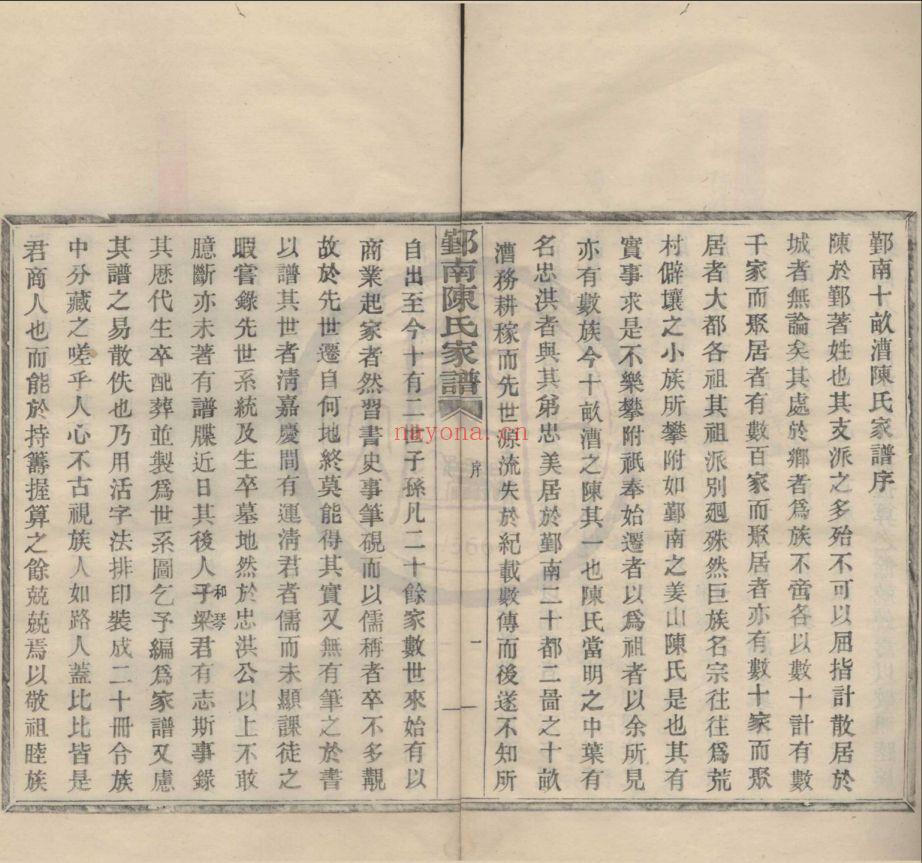 鄞南十畝漕陳氏家譜序
陳於鄞著姓也其支派之多殆不可以屈指計散居於
城者無論矣其處於鄉者爲族不啻各以數十計有數
千家而聚居者有數百家而聚居者亦有數十家而聚
居者大都各祖其祖派別廻殊然巨族名宗往往爲荒
村僻壤之小族所攀附如鄞南之姜山陳氏是也其有
實事求是不樂攀附祇奉始遷者以爲祖者以余所見
亦有數族今十畝漕之陳其一也陳氏當明之中葉有
名忠洪者與其弟忠美居於鄞南二十都二啚之十畝
漕務耕稼而先世源流失於紀載數傳而後遂不知所
鄞南陳氏家譜 序 一
自出至今十有二世子孫凡二十餘家數世來始有以
商業起家者然習書史事筆硯而以儒稱者卒不多覯
故於先世遷自何地終莫能得其實又無有筆之於書
以譜其世者淸嘉慶間有運淸君者儒而未顯課徒之
暇嘗錄先世系統及生卒墓地然於忠洪公以上不敢
臆斷亦未著有譜牒近日其後人子梁和琴君有志斯事錄
其歷代生卒配葬並製爲世系圖乞予編爲家譜又慮
其譜之易散佚也乃用活字法排印裝成二十冊令族
中分藏之嗟乎人心不古視族人如路人蓋比比皆是
君商人也而能於持籌握算之餘兢兢焉以敬祖睦族
nryona.cn